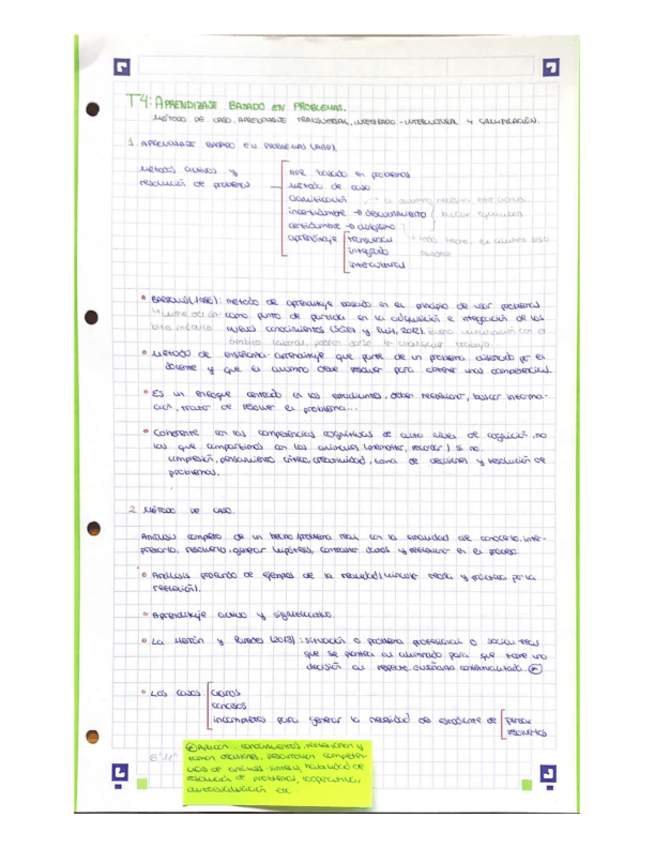 T4: APRENDIZAJE BASADO EN PROBLEMAS.
MÉTODO DE CASO, APRENDIZAJE TRANSVERSAL, INTEGRADO-INTERCULTURAL Y GAMIFICACIÓN.
1. APRENDIZAJE BASADO EN PROBLEMAS (ABP).
Métodos activos y
resolución de problemas
APR basado en problemas
Método de caso
Gamificación
incertidumbre → descubrimiento
certidumbre →
aprendizaje
transversal
integrado
intercultural
• BARROWS (1986): método de aprendizaje basado en el principio de usar problemas
como punto de partida en la adquisición e integración de los
nuevos conocimientos
ámbito laboral,
• Método de enseñanza-aprendizaje que parte de un problema diseñado por el
docente y que el alumno debe resolver para obtener unas competencias.
• Es un enfoque centrado en los estudiantes, deben reflexionar, buscar informa-
ción, tratar de resolver el problema...
• Coherente con las competencias cognitivas de alto nivel de cognición, no
las que compartimos con los animales (memoria, ) si no
comprensión, pensamiento crítico, creatividad, toma de decisiones y resolución de
problemas.
2. MÉTODO DE CASO.
Análisis completo de un hecho/problema real con la finalidad de conocerlo, inter-
pretarlo, resolverlo, generar hipótesis, contrastar datos y reflexionar en el proceso
• Análisis profundo de ejemplos de la realidad (vincular teoría y práctica por la
reflexión).
• Aprendizaje activo y significativo.
• La y Paredes (2013): situación o problema profesional o social real
que se plantea al alumnado para que tome una
decisión al respecto. Enseñanza contextualizada.
• Los casos:
Claros
concisos
incompletos para generar la necesidad de estudiante de
pensar
resolverlos
Aplican conocimientos, reflexionan y
toman decisiones, desarrollan competen-
cias de análisis-síntesis, habilidad de
resolución de problemas, cooperativa,
autoevaluación etc.